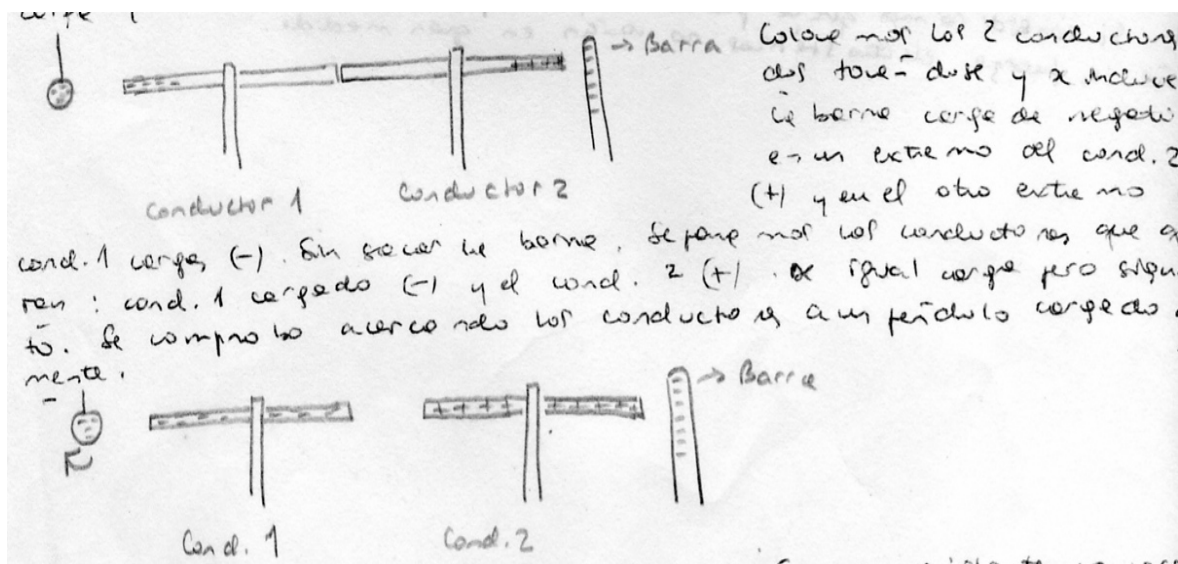 → Barra
Colocamos los 2 conductores
dos tocándose y se induce
la barra carga de negati
en un extremo del cond. 2
(+) y en el otro extremo
conductor 1
conductor 2
cond. 1 cargas (-). Sin sacar la barra. Separamos los conductores que q
ran: cond. 1 cargado (-) y el cond. 2 (+). de igual carga pero sign
to. Se comprobo acercando los conductores a un péndulo cargado
mente.
→ Barra
Cond. 1
Cond. 2